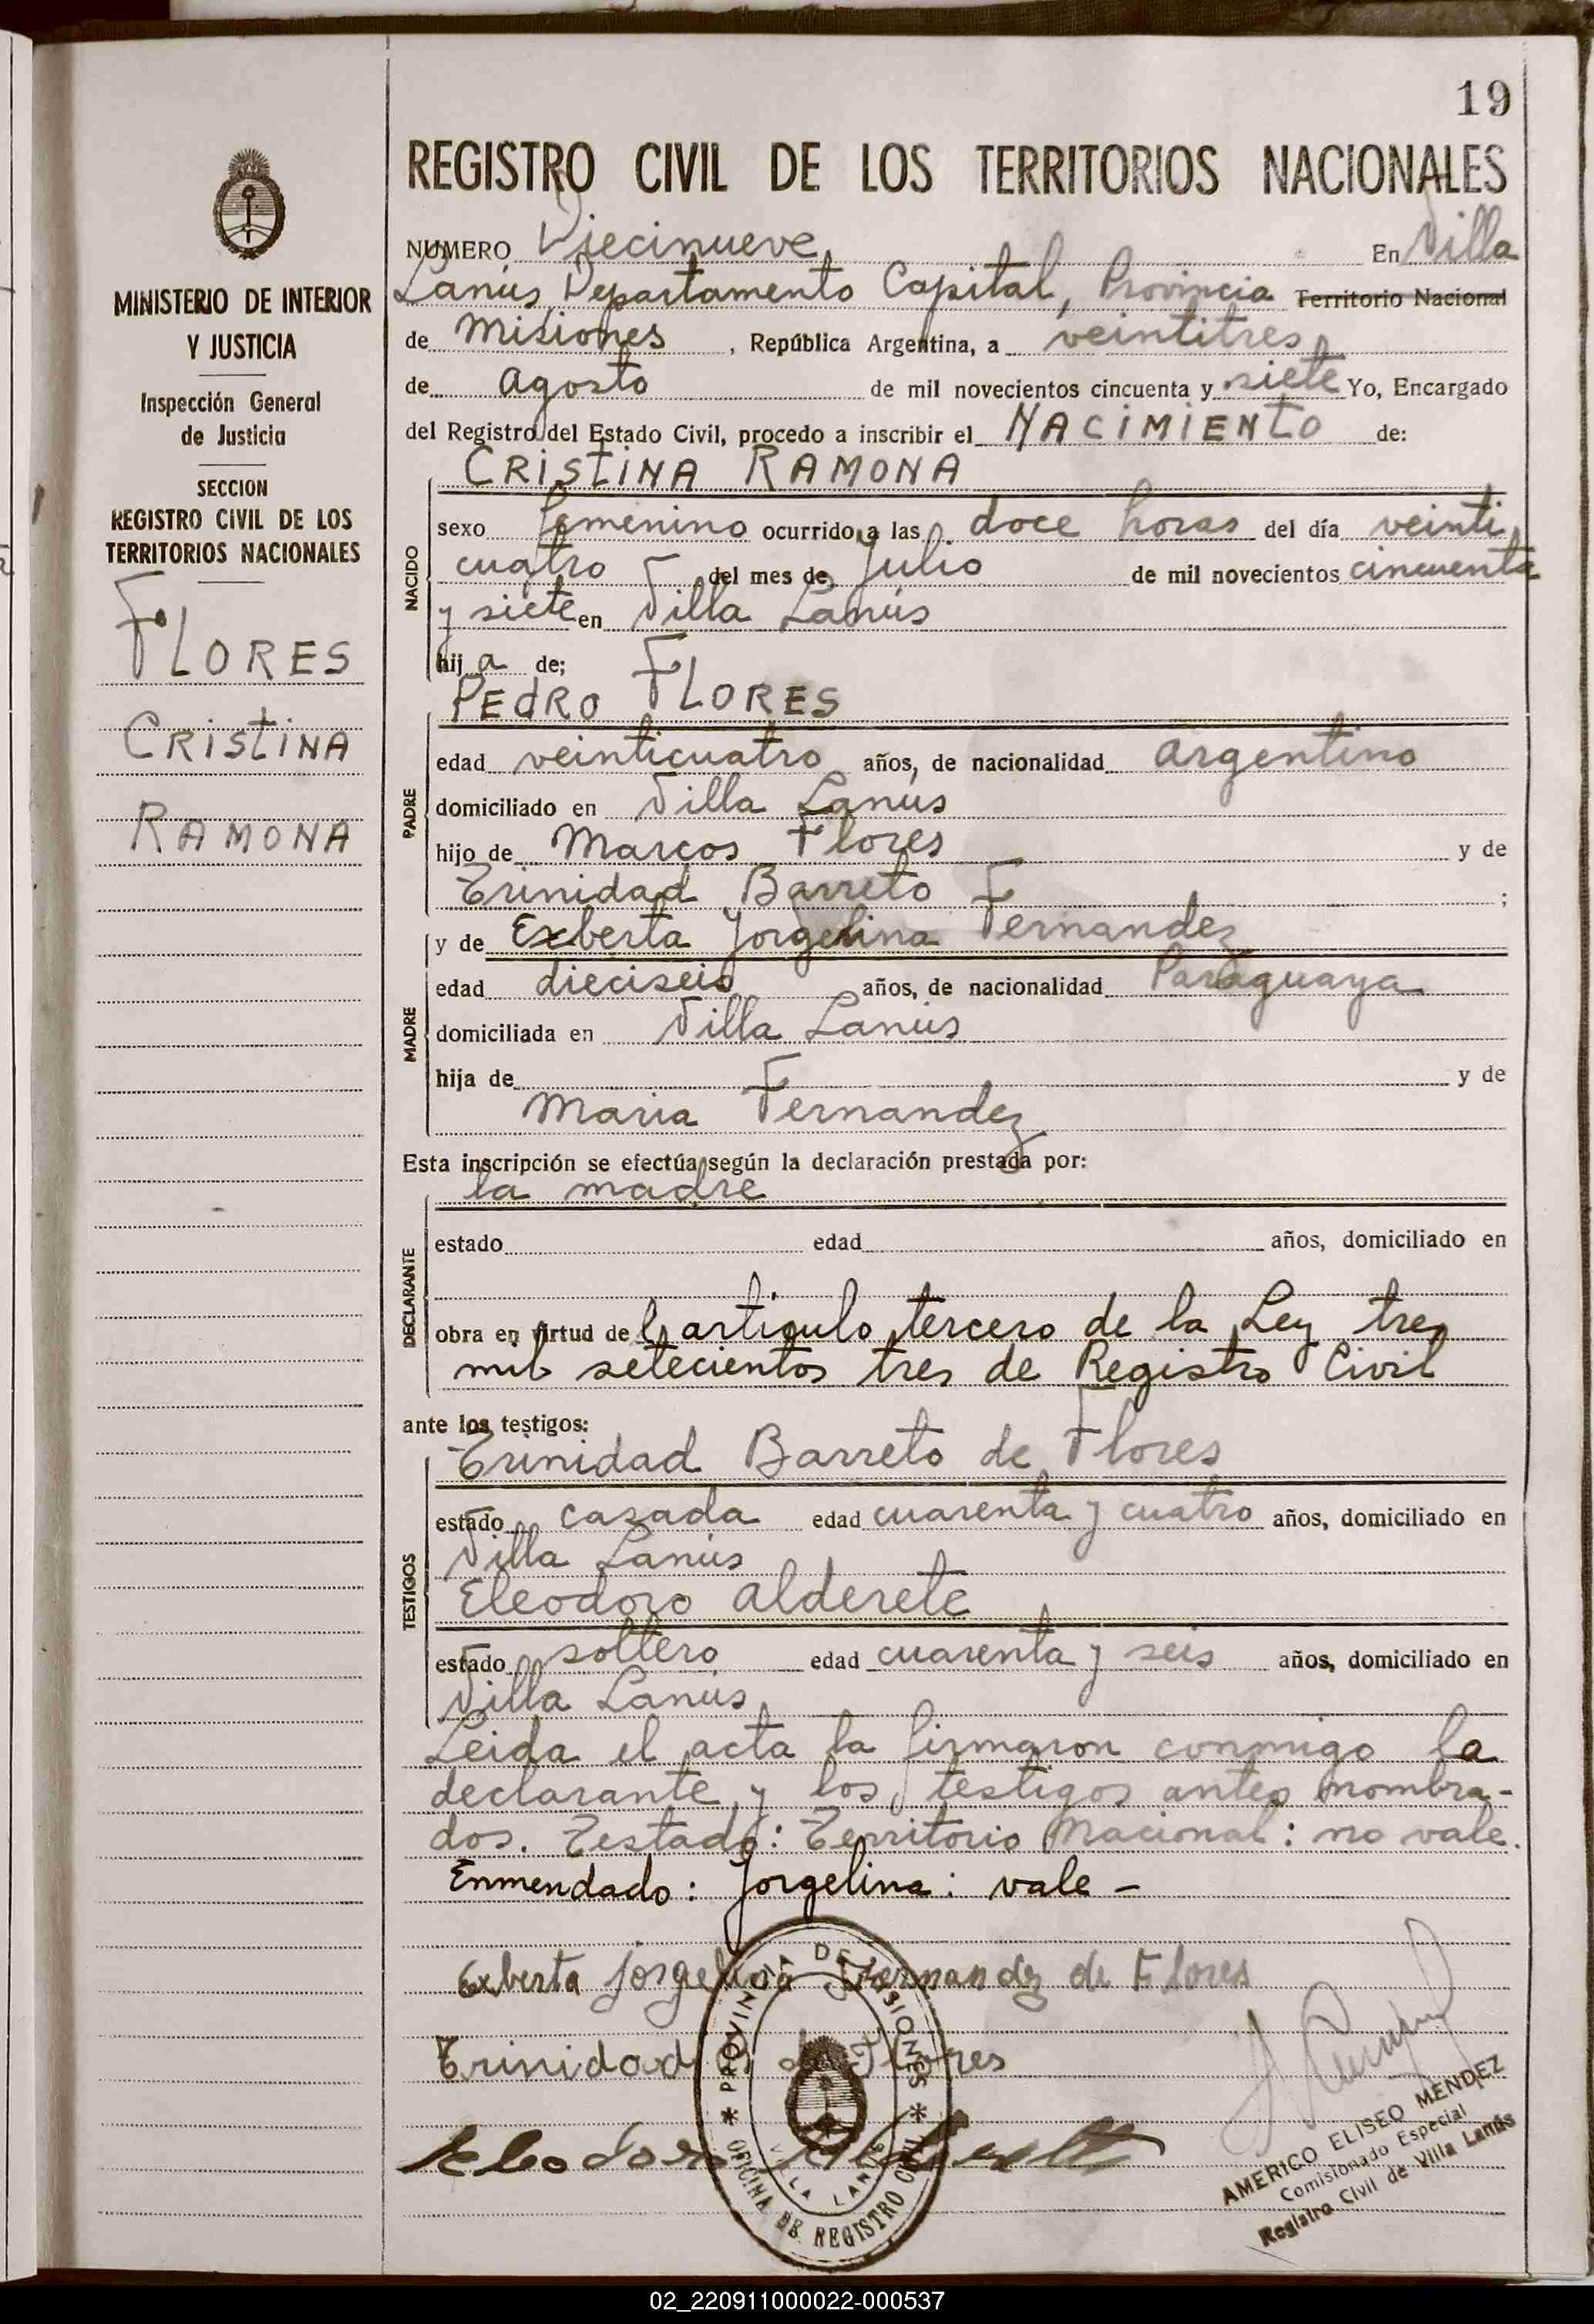 19
REGISTRO CIVIL DE LOS TERRITORIOS NACIONALES
MINISTERIO DE INTERIOR
Y JUSTICIA
Inspección General
de Justicia
SECCION
REGISTRO CIVIL DE LOS
TERRITORIOS NACIONALES
FLORES
CRISTINA
RAMONA
NUMERO Diecinueve En Villa
Lanús Departamento Capital, Provincia Territorio Nacional
de Misiones, República Argentina, a veintitres
de Agosto de mil novecientos cincuenta y siete Yo, Encargado
del Registro del Estado Civil, procedo a inscribir el NACIMIENTO de:
CRISTINA RAMONA
NACIDO
sexo femenino ocurrido a las doce horas del día veinti
cuatro del mes de Julio de mil novecientos cincuenta
y siete en Villa Lanús
hija de;
PEDRO FLORES
PADRE
edad veinticuatro años, de nacionalidad argentino
domiciliado en Villa Lanús
hijo de Marcos Flores y de
Trinidad Barreto ;
y de Exberta Jorgelina Fernandez
MADRE
edad dieciseis años, de nacionalidad Paraguaya
domiciliada en Villa Lanús
hija de y de
Maria Fernandez
Esta inscripción se efectúa según la declaración prestada por:
la madre
DECLARANTE
estado edad años, domiciliado en
obra en virtud del artículo tercero de la Ley tres
mil setecientos tres de Registro Civil
ante los testigos:
TESTIGOS
Trinidad Barreto de Flores
estado casada edad cuarenta y cuatro años, domiciliado en
Villa Lanús
Eleodoro Alderete
estado soltero edad cuarenta y seis años, domiciliado en
Villa Lanús
Leida el acta la firmaron conmigo la
declarante y los testigos antes nombra-
dos. Testado: Territorio Nacional: no vale.
Enmendado: Jorgelina: vale -
Exberta jorgelina Fernandez de Flores
Trinidad B de Flores
Eleodoro Alderete
PROVINCIA DE MISIONES
OFICINA DE REGISTRO CIVIL
VILLA LANUS
AMERICO ELISEO MENDEZ
Comisionado Especial
Registro Civil de Villa Lanús
02_220911000022-000537